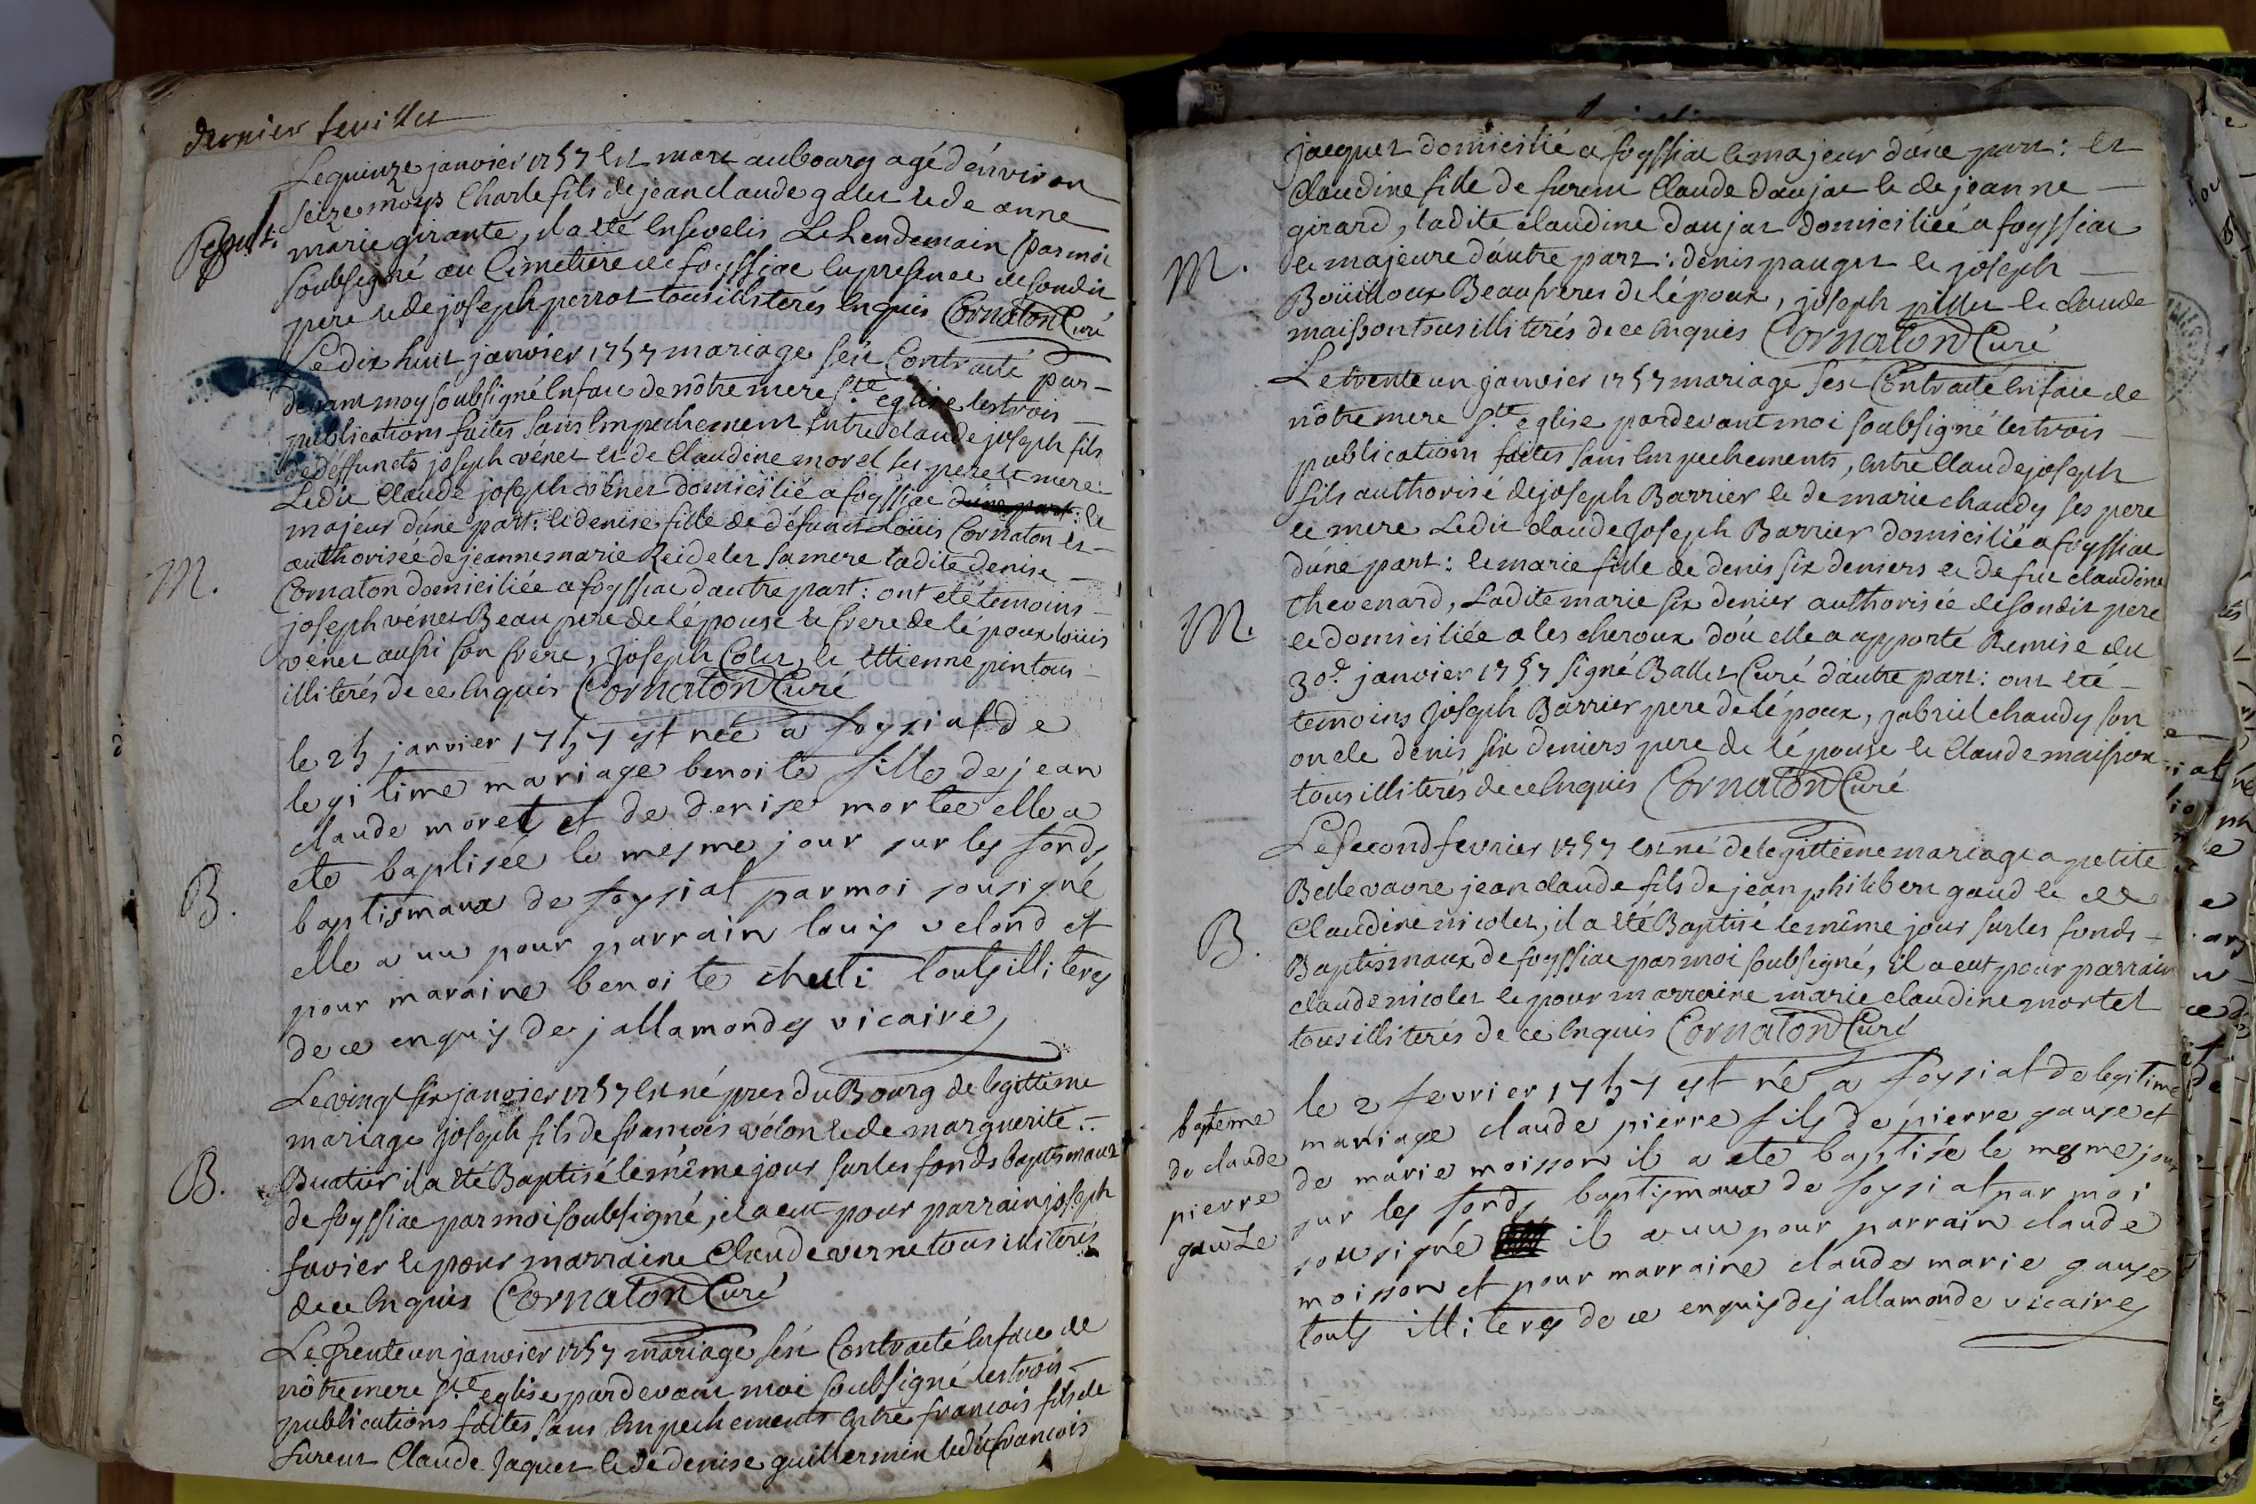 dernier feuillet
Le quinze janvier 1757 est mort au bourg agé d'environ
seize moys Charle fils de jean claude galet et de anne
Sepult.
marie girante, il a eté ensevelis Le Lendemain par moi
soubsigné au Cimetiere de foyssiac en presence de sondit
pere et de joseph perrot tous illiterés enquis Cornaton Curé
Le dix huit janvier 1757 mariage s'est Contracté par-
devant moy soubsigné en face de nôtre mere Ste eglise les trois
publications faites sans empechement entre claude joseph fils
de déffuncts joseph vénet et de Claudine morel ses pere et mere
Ledit Claude joseph vénet domicilié a foyssiac d'une part: le
majeur d'une part: et denise fille de défunct Loüis Cornaton et
authorisée de jeanne marie Reidelet sa mere ladite denise
M.
Cornaton domiciliée a foyssiac d'autre part: ont eté temoins
joseph vénet Beau pere de l'épouse et frere de l'époux loüis
vénet aussi son frere, joseph Colet, et Ettienne pin tous
illiterés de ce enquis Cornaton Curé
le 25 janvier 1757 est neé a foysiat de
legitime mariage benoite fille de jean
claude morel et de denise mortee elle a
ete baptisée le mesme jour sur les fonds
B.
baptismaux de foysiat par moi sousigné
elle a uu pour parrain louis velond et
pour maraine benoite chuti touts illiteres
de ce enquis dej allamondes vicaire
Le vingt six janvier 1757 est né pres du Bourg de legittime
mariage joseph fils de francois vélon et de marguerite
B.
Buatier il a eté Baptisé le même jour sur les fonds baptismaux
de foyssiac par moi soubsigné, il a eut pour parrain joseph
favier et pour marraine Claude verne tous illiterés
de ce enquis Cornaton Curé
Le Trente un janvier 1757 mariage s'est Contracté en face de
nôtre mere Ste eglise pardevant moi soubsigné les trois
publications faites sans empechements entre francois fils de
furent Claude Jaquet et de denise guillermin ledit francois
jacquet domicilié a foyssiac le majeur d'une part: et
Claudine fille de furent Claude daujat et de jeanne
girard, ladite claudine daujat domiciliée a foyssiac
M.
et majeure d'autre part: denis pauget et joseph
Boüilloux Beaufreres de l'époux, joseph pillet et claude
maisson tous illiterés de ce enquis Cornaton Curé
Le trente un janvier 1757 mariage s'est Contracté en face de
nôtre mere Ste eglise pardevant moi soubsigné les trois
publications faites sans empechements, entre Claude joseph
fils authorisé de joseph Barrier et de marie chaudy ses pere
et mere Ledit claude Joseph Barrier domicilié a foyssiac
d'une part: et marie fille de denis six deniers et de fut claudine
thevenard, Ladite marie six denier authorisée de sondit pere
M.
et domiciliée a les cheroux d'où elle a apporté Remise du
30e janvier 1757 signé Ballet Curé d'autre part: ont eté
temoins Joseph Barrier pere de l'époux, gabriel chaudy son
oncle denis six deniers pere de l'épouse et Claude maisson
tous illiterés de ce enquis Cornaton Curé
Le second fevrier 1757 est né de legittieme mariage a petite
Bellevavre jean claude fils de jean philibert gaud et de
Claudine nicolet, il a eté Baptisé le même jour sur les fonds
B.
Baptismaux de foyssiac par moi soubsigné, il a eut pour parrain
claude nicolet et pour marraine marie claudine mortel
tous illiterés de ce enquis Cornaton Curé
le 2 fevrier 1757 est né a foysiat de legitime
bapteme
de claude
pierre
gauze
mariage claude pierre fils de pierre gauze et
de marie moisson il a ete baptisé le mesme jour
sur les fonds baptismaux de foysiat par moi
sousigné il a uu pour parrain claude
moisson et pour marraine claude marie gauze
touts illiteres de ce enquis dej allamonde vicaire